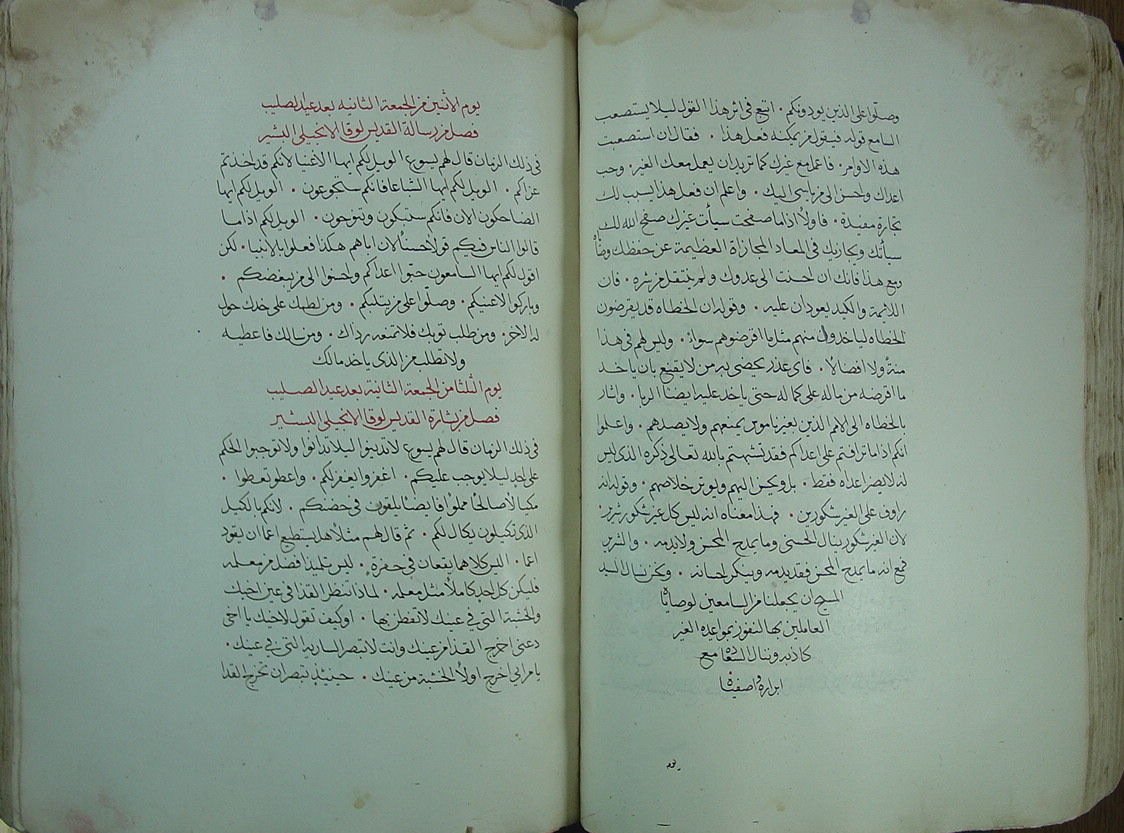 وصلّوا على الذين يودونكم ٠ اتبع في اثر هذا القول ليلا يستصعب
السامع قوله فيقول من يمكنه فعل هذا ٠ فقال ان استصعبت
هذه الاوامر ٠ فاعمل مع غيرك كما تريد ان يعمل معك الغير ٠ وحب
اعداك واحسن الى من ياسي اليك ٠ واعلم ان فعل هذا يسبب لك
تجارة مفيدة ٠ فاولاً اذا ما صفحت سيأت غيرك صفح الله لك
سيأتك ويجازيك في المعاد المجازاة العظيمة عن حفظك وصاياه
ومع هذا فانك ان احسنت الى عدوك ولم ينتقل من شره ٠ فان
اللايمة والكيد يعودان عليه ٠ وقوله ان الخطاه قد يقرضون
الخطاه لياخدوا منهم مثل ما اقرضوهم سواء ٠ وليس لهم في هذا
منة ولا افضالاً ٠ فاي عذر يحضى به من لا يقنع بان ياخد
ما اقرضه من ماله على كماله حتى ياخد عليه ايضاً الربا ٠ واشار
بالخطاه الى الامم الذين بغير ناموس يمنعهم ولا يصدهم ٠ واعلموا
انكم اذا ما ترافتم على اعداكم فقد تشبهتم بالله تعالى ذكره الذي ليس
انه لا يضر اعداه فقط ٠ بل ويحسن اليهم ويوتر خلاصهم ٠ وقوله انه
راوف على الغير شكورين ٠ فهذا معناه انه ليس كل غير شكور شرير ٠
لان الغير شكور ينال الحسنى وما يمدح المحسن ولا يدمه ٠ والشرير
فمع انه ما يمدح المحسن فقد يدمه وينكر احسانه ٠ ونحن نسال السيد
المسيح ان يجعلنا من السامعين لوصاياه
العاملين بها الفوز بمواعيده الغير
كاذبه وننال السعاده مع
ابراره واصفياه
يوم
يوم الاثنين من الجمعة الثانيه بعد عيد الصليب
فصل من رسالة القديس لوقا الانجيلي البشير
في ذلك الزمان قال لهم يسوع الويل لكم ايها الاغنيا لانكم قد اخدتم
عزاكم ٠ الويل لكم ايها الشباعا فانكم ستجوعون ٠ الويل لكم ايها
الضاحكون الان فانكم ستبكون وتنوحون ٠ الويل لكم اذا ما
قالوا الناس فيكم قولاً حسناً لان اباهم هكذا فعلوا بالانبيا ٠ لكن
اقول لكم ايها السامعون حبّوا اعداكم واحسنوا الى من يبغضكم ٠
وباركوا لاعنيكم ٠ وصلّوا على من يتلبكم ٠ ومن لطمك على خدك حول
له الاخر ٠ ومن طلب توبك فلا تمنعه رداك ٠ ومن سالك فاعطيه
ولا تطلب من الذى ياخد مالك
يوم الثلثا من الجمعة الثانية بعد عيد الصليب
فصل من بشارة القديس لوقا الانجيلي البشير
في ذلك الزمان قال لهم يسوع لا تدينوا ليلا تدانوا ولا توجبوا الحكم
على احد ليلا يوجب عليكم ٠ اغفروا يغفر لكم ٠ واعطوا تعطوا ٠
مكيالاً صالحاً مملوًا فايضاً يلقون في حضنكم ٠ لانكم بالكيل
الذى تكيلون يكال لكم ٠ ثم قال لهم مثلاً هل يستطيع اعما ان يقود
اعما ٠ اليس كلاهما يقعان في حفرة ٠ ليس تلميذاً افضل من معلمه
فليكن كل احد كاملاً مثل معلمه ٠ لماذا تنظر القذا في عين اخيك
والخشبة التي في عينك لا تفطن بها ٠ او كيف تقول لاخيك يا اخي
دعنى اخرج القذا من عينك وانت لا تبصر السارية التي في عينك ٠
يا مرائي اخرج اولاً الخشبة من عينك ٠ حينيذٍ تبصر ان تخرج القذا